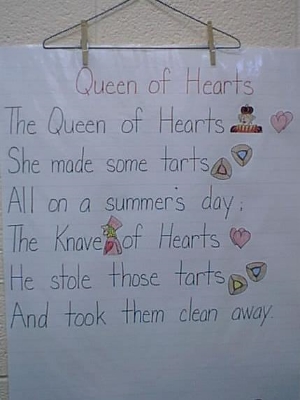 Queen of Hearts
The Queen of Hearts
She made some tarts
All on a summer's day;
The Knave of Hearts
He stole those tarts
And took them clean away.